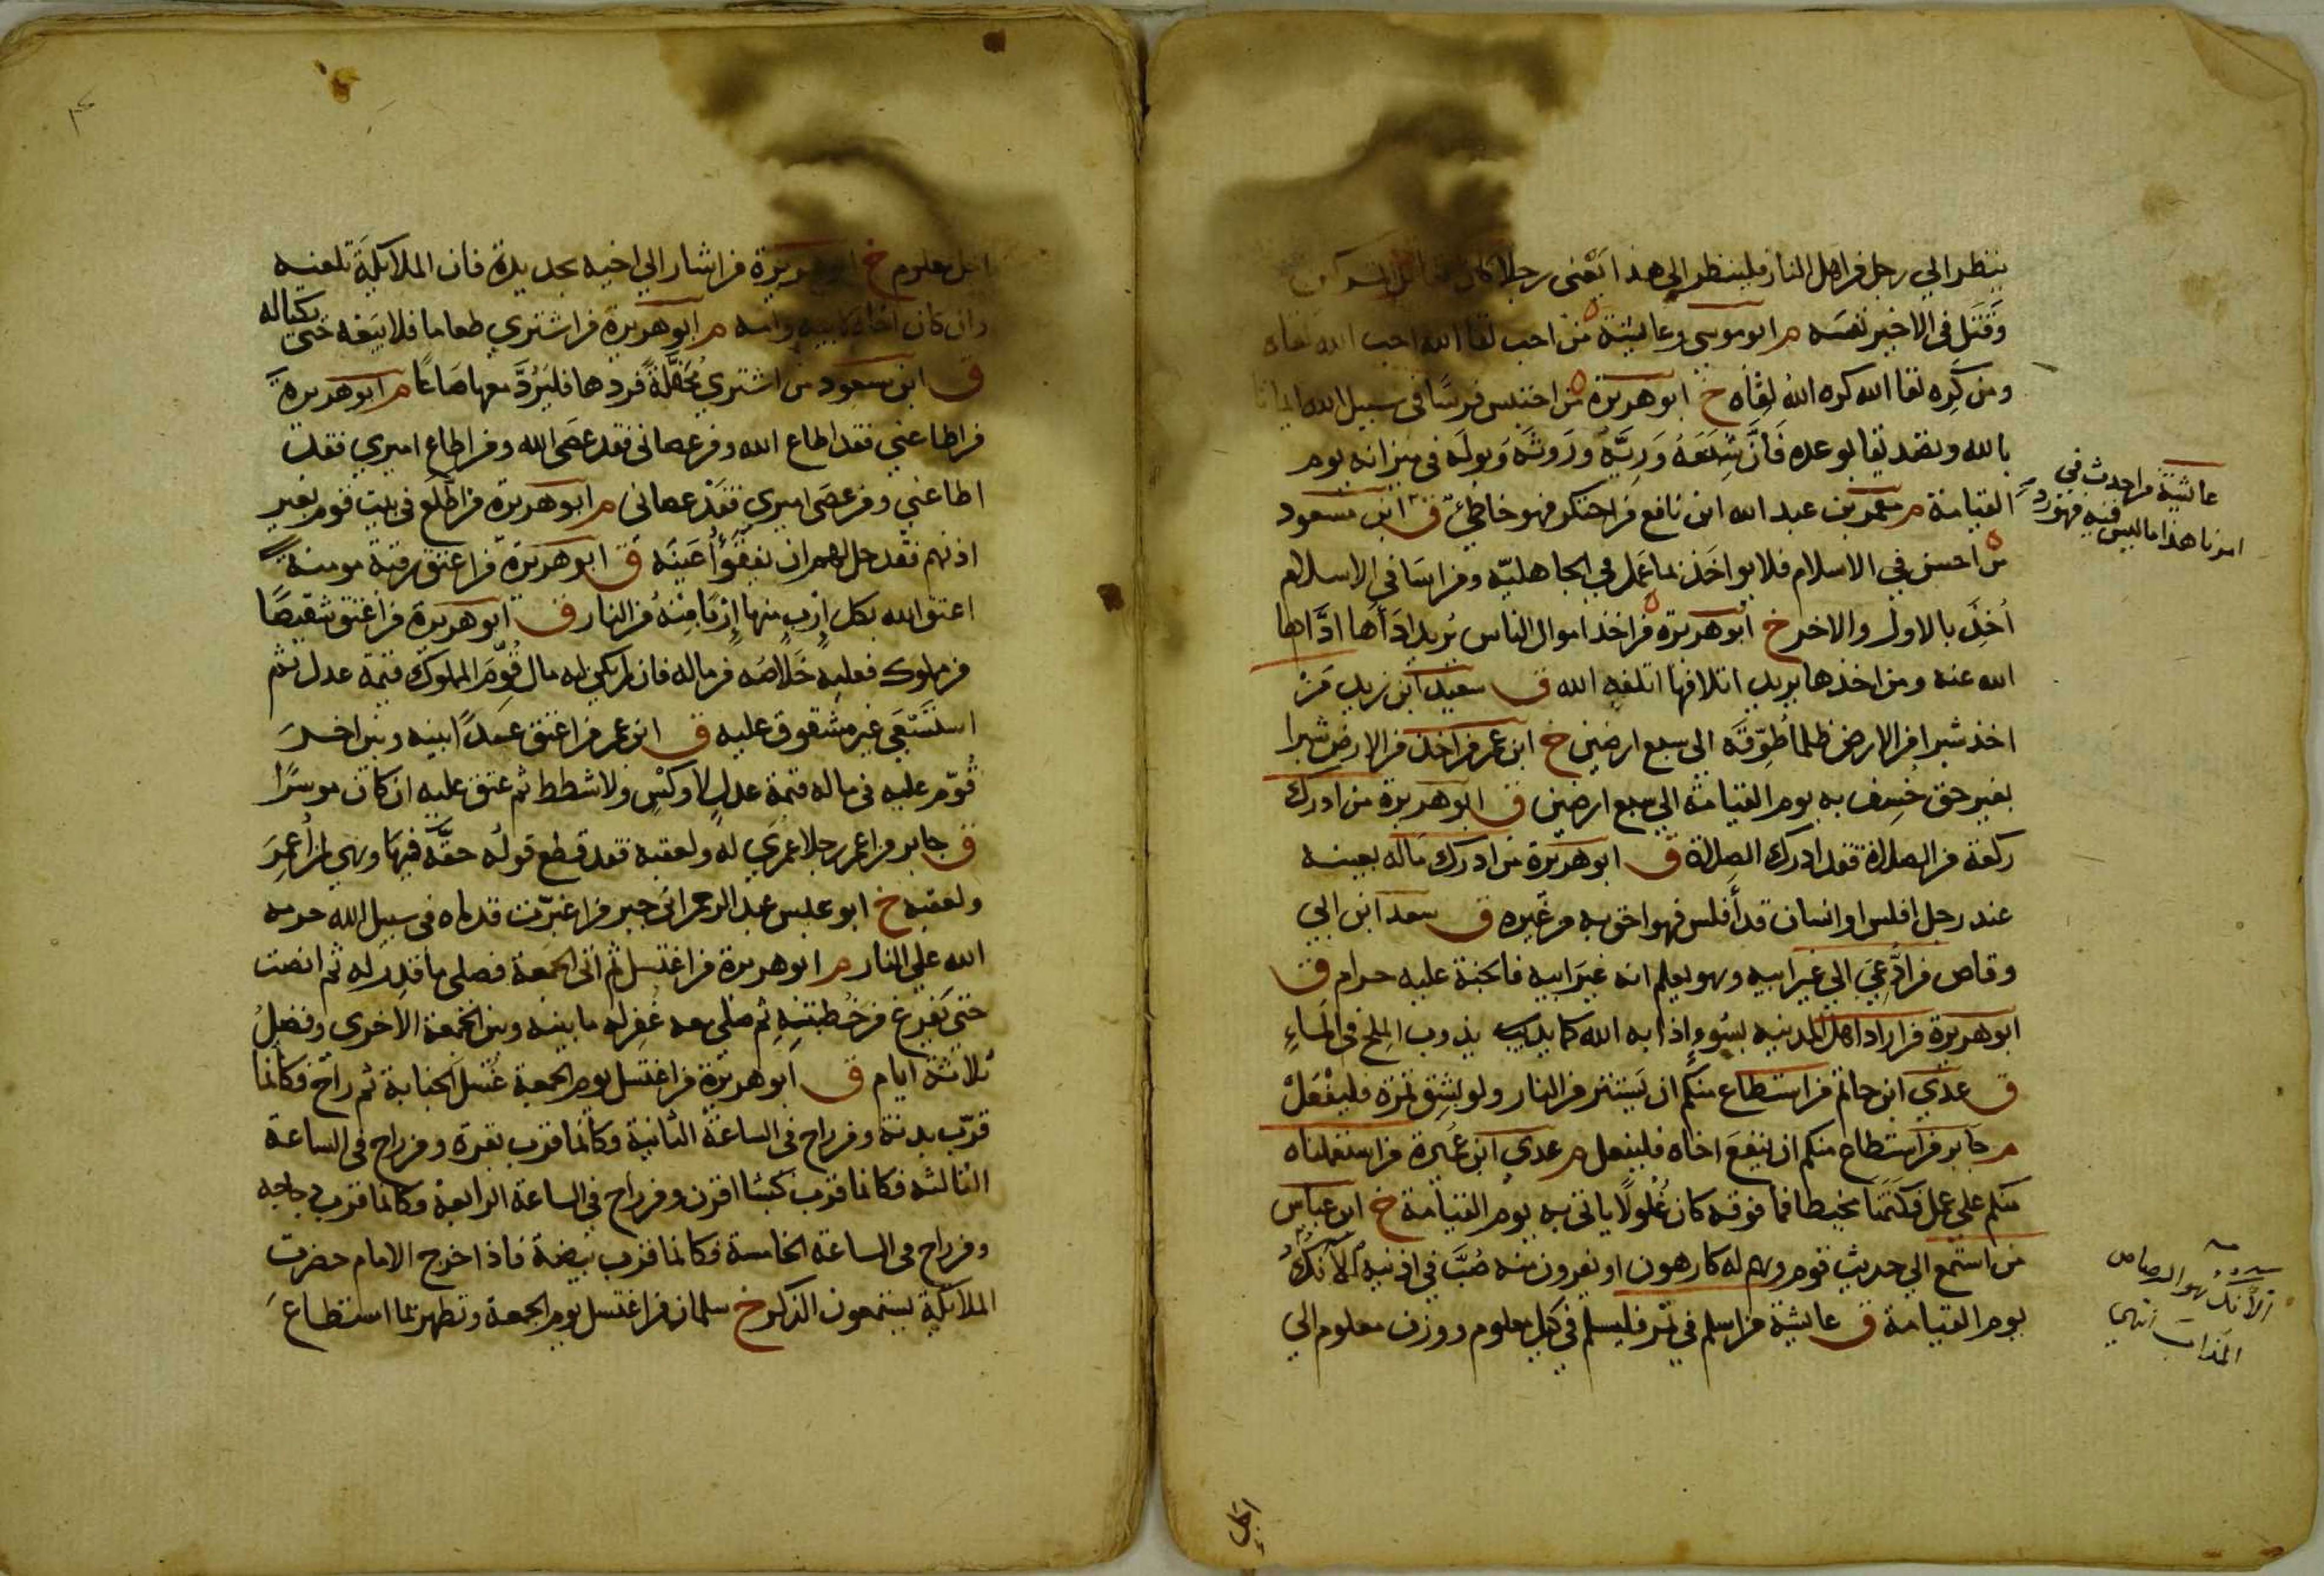 ينظر الي رجل من اهل النار فلينظر الي هذا يَعْني رجلا كان
وَقَتَل في الاخير نفسَه م ابو موسى وعايشة مَنْ احب لقا الله احب الله لقاه
ومن كَرِه لقا الله كره اللهُ لِقَاه خ ابو هريرة من احتبس فرسًا في سبيل الله ايمانا
بالله وتصديقا بوعده فَاِنَّ شِبَعَهُ وَرِيَّهُ ورَوثَه وَبولَه في ميزانه يوم
القيامة م معمر بن عبد الله ابن نافع من احتكر فهو خاطئ ق ابن مسعود
من احسن في الاسلام فلا يواخَذ بما عَمل في الجاهليّه ومن اسَا في الاسلام
اُخِذَ بالاول والاخر خ ابو هريرة من اخذ اموال الناس يُريد اَدَاها ادَّاها
الله عنه ومن اخذها يريد اتلافها اتلفه الله ق سعيد ابن زيد مَنْ
اخذ شبرا من الارض ظلما طُوِّقَه الى سبع ارضين خ ابن عمر من اخذ من الارض شبرا
بغير حق خُسِف به يوم القيامة الي سبع ارضين ق ابو هريرة من ادرك
ركعة من الصلاة فقد ادرك الصلاة ق ابو هريرة من ادرك ماله بعينه
عند رجل افلس او انسان قد اَفلس فهو احق به من غيره ق سعد ابن ابي
وقاص من ادُّعِيَ الي غير ابيه وهو يعلم انه غير ابيه فالجنة عليه حرام ق
ابو هريرة من اراد اهل المدينه بسُوءٍ اذابه الله كما يذوب الملح في الماءِ
ق عدي ابن حاتم من استطاع منكم ان يَستتر من النار ولو بشِق تمرة فليَفْعَلْ
م جابر من استطاع منكم ان ينفع اخاه فليفعل م عدي ابن عُمَيرة من استعملناه
منكم علي عمل فكتَمَنَا مخيطا فما فوقه كان غُلولًا ياتي به يوم القيامة خ ابن عباس
من استَمع الي حديث قوم وهم له كارهون او يفرون منه صُبَّ في اذنيه الآنُكُ
يوم القيامة ق عايشة من اسلم في تمر فليسلم في كيل معلوم ووزن معلوم الي
عايشة من احدث في
امرنا هذا ما ليس فيه فهو رد
الآنك هو الرصاص
المذاب انتهى
اجل
اجل معلوم خ ابو هريرة من اشار الي اخيه بحديدة فان الملايكة تلعنه
وان كان اخاه لابيه وامه م ابو هريرة من اشتري طعاما فلا يَبعْه حَتى يكتاله
ق ابن مسعود من اشتري مُحَفَّلَةً فردها فليَرُدَّ معها صَاعًا م ابو هريرة
من اطاعني فقد اطاع الله ومن عصاني فقد عصَى الله ومن اطاع اميري فقد
اطاعني ومن عصَى اميري فقد عصاني م ابو هريرة من اطَّلَع في بيت قوم بغير
اذنهم فقد حل لهم ان يفقَؤُا عَينَه ق ابو هريرة من اعتق رقبة مومنة
اعتق الله بكل اِرْبٍ منها اِرْبًا مِنْهُ من النار ق ابو هريرة من اعتق شقِيصًا
من مملوك فعليه خَلاصُه من ماله فان لم يكن له مال قُوِّمَ المملوك قيمة عدل ثم
استُسْعِيَ غير مشقوق عليه ق ابن عمر من اعتق عبدًا بينه وبين اخر
قُوّم عليه في ماله قيمة عدلٍ لا وَكْسٍ ولا شطط ثم عتق عليه ان كان موسرًا
ق جابر من اعمر رجلا عُمرَي له ولعقبه فقد قطع قولُه حقَّه فيها وهي لمن اُعمِرَ
ولعقبه خ ابو عبس عبد الرحمن ابن جبر من اغبرّت قدماه في سبيل الله حرمه
الله علي النار م ابو هريرة من اغتسل ثم اتى الجمعة فصلى ما قدِرَ له ثم انصت
حتى يَفرُغ من خُطبتِهِ ثم صلى معه غُفِر له ما بينه وبين الجُمعة الاُخرى وفضلُ
ثلاثة ايام ق ابو هريرة من اغتسل يوم الجمعة غُسْل الجنابة ثم راح فكانما
قرّب بدنة ومن راح في الساعة الثانية فكانما قرب بقرة ومن راح في الساعة
الثالثه فكانما قرب كبشا اقرن ومن راح في الساعة الرابعة فكانما قرب دجاجه
ومن راح في الساعة الخامسة فكانما قرب بيضة فاذا خرج الامام حضرت
الملايكة يستمعون الذكر خ سلمان من اغتسل يوم الجمعة وتطهر بما استطاعَ